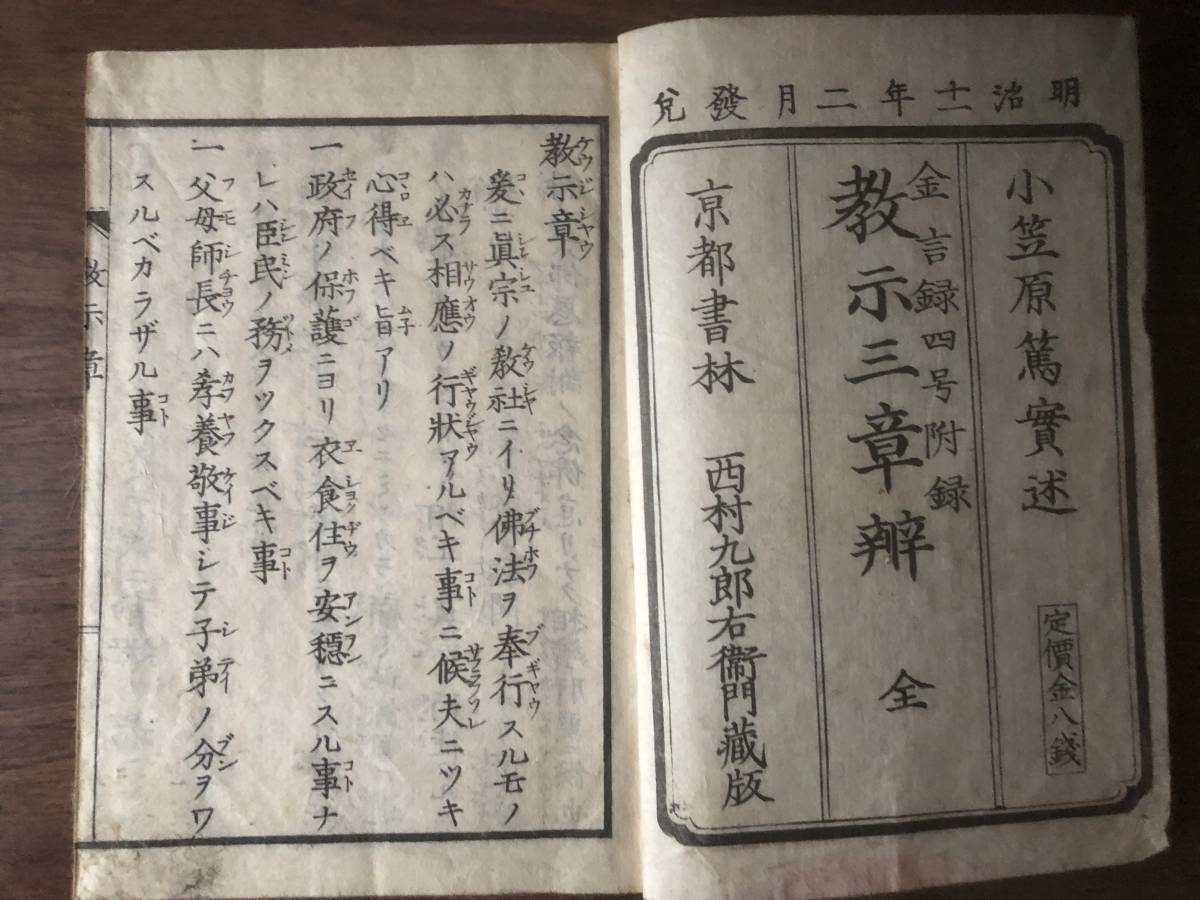 明治十一年二月發兌
小笠原篤實述
定價金八錢
金言録四号附録
教示三章辨 全
京都書林 西村九郎右衞門藏版
教示章
爰ニ眞宗ノ教社ニイリ佛法ヲ奉行スルモノ
ハ必ス相應ノ行狀アルベキ事ニ候夫ニツキ
心得ベキ旨アリ
一政府ノ保護ニヨリ衣食住ヲ安穏ニスル事ナ
レハ臣民ノ務ヲツクスベキ事
一父母師長ニハ孝養敬事シテ子弟ノ分ヲワ
スルベカラザル事
教示章